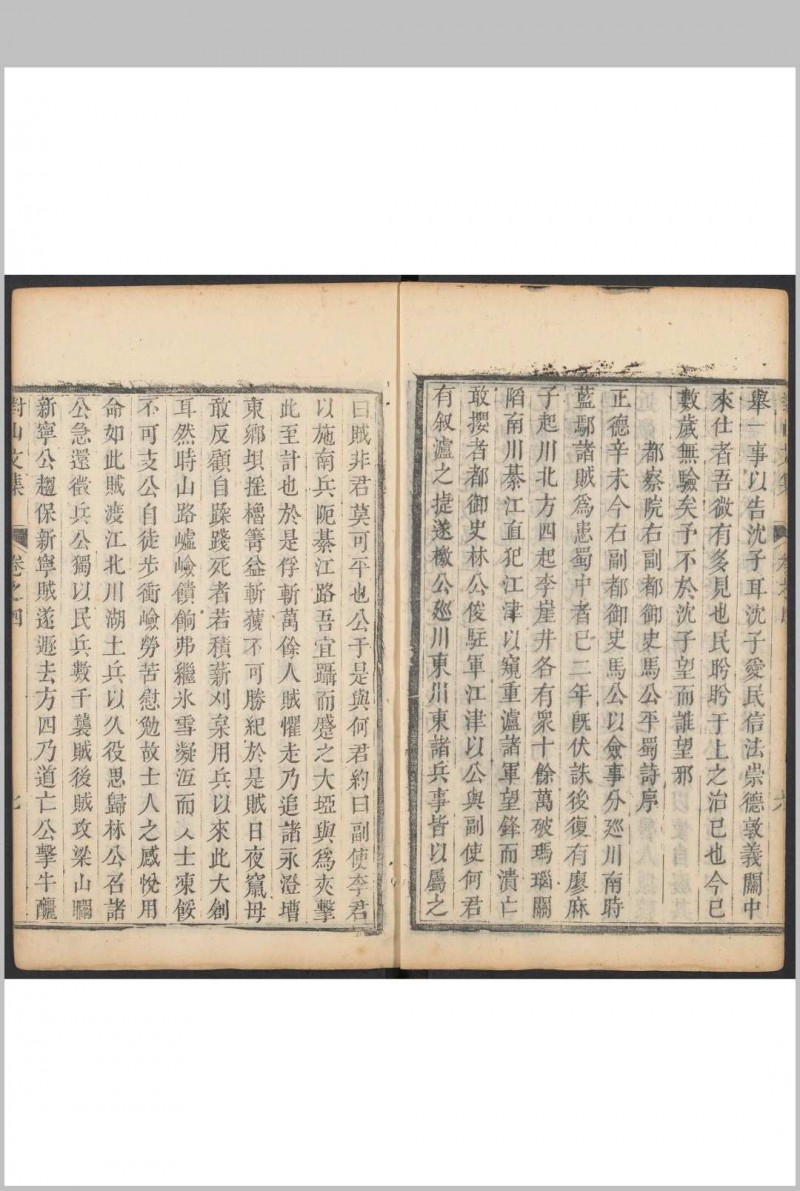 舉一事以告沈子耳沈子愛民信法崇德敦義關中
來仕者吾微有多見也民盻盻于上之治已也今已
數歲無驗矣予不於沈子望而誰望邪
都察院右副都御史馬公平蜀詩序
正德辛未今右副都御史馬公以僉事分廵川南時
藍鄢諸賊爲患蜀中者巳二年旣伏誅後復有廖麻
子起川北方四起李崖井各有衆十餘萬破瑪瑙關
陷南川綦江直犯江津以窺重瀘諸軍望鋒而潰亡
敢攖者都御史林公俊駐軍江津以公與副使何君
有叙瀘之捷遂檄公廵川東川東諸兵事皆以屬之
曰賊非君莫可平也公于是與何君約曰副使李君
以施南兵阨綦江路吾宜躡而蹙之大埡與爲夾擊
此至計也於是俘斬萬餘人賊懼走乃追諸永澄墰
東鄉垻摧櫓箐益斬獲不可勝紀於是賊日夜竄毋
敢反顧自蹂踐死者若積薪刈杲用兵以來此大創
耳然時山路巇嶮饋餉弗繼氷雪凝沍而人士凍餒
不可支公自徒步衝嶮勞苦慰勉故士人之感悅用
命如此賊渡江北川湖土兵以久役思歸林公召諸
公急還徵兵公獨以民兵數千襲賊後賊攻梁山瞯
新寧公趨保新寧賊遂遯去方四乃道亡公擊牛釃
對山文集
卷之四
七